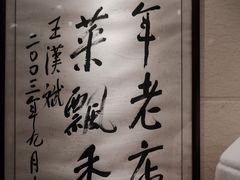 年老店
菜飄香
王漢斌
二〇〇三年九月十